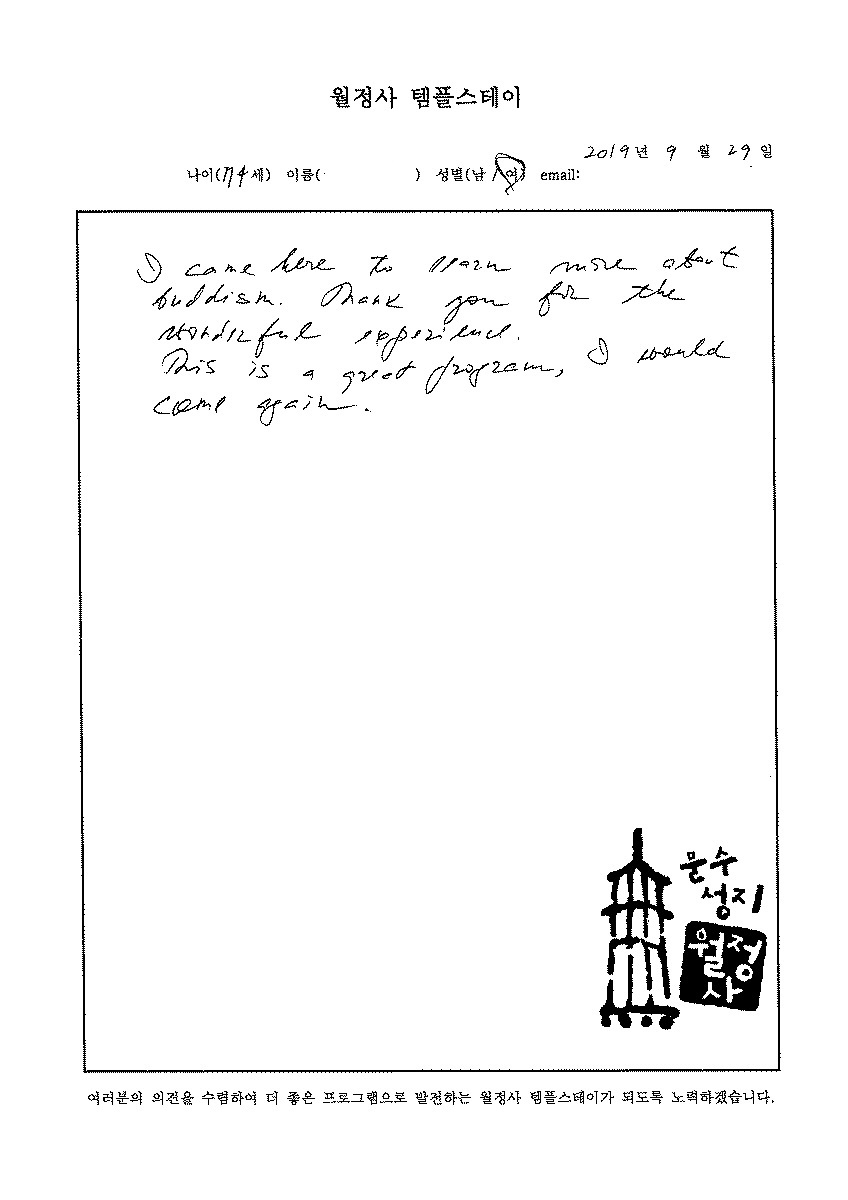 월정사 템플스테이
2019년 9 월 29 일
나이(74세) 이름( ) 성별(남/여) email:
I came here to learn more about
buddism. Thank you for the
wonderful experience.
This is a great program, I would
come again.
문수
성지
월정
사
여러분의 의견을 수렴하여 더 좋은 프로그램으로 발전하는 월정사 템플스테이가 되도록 노력하겠습니다.